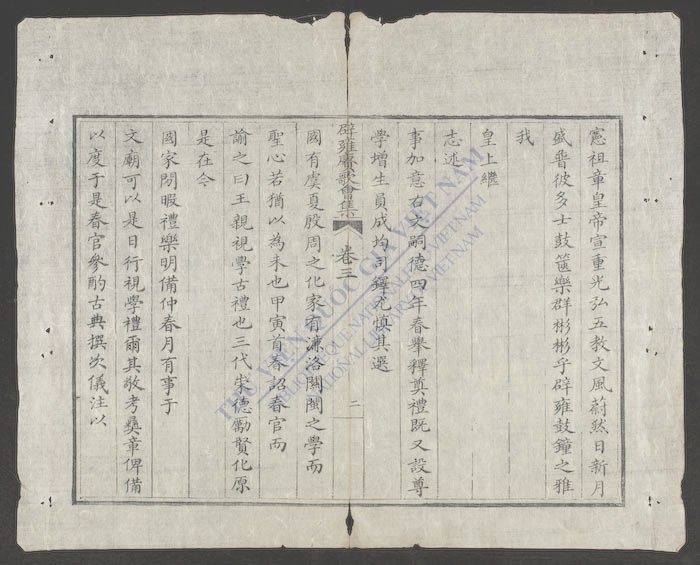 憲祖章皇帝宣重光弘五教文風蔚然日新月
盛譽彼多士鼓篋樂群彬彬乎辟雍鼓鐘之雅
我
皇上繼
志述
事加意右文嗣德四年春舉釋奠禮既又設尊
學增生員成均司鐸尤慎其選
辟雍賡歌會集 卷三 二
國有虞夏殷周之化家有濂洛關閩之學而
聖心若猶以為未也甲寅首春詔春官而
諭之曰王親視學古禮也三代崇德勵賢化原
是在今
國家閒暇禮樂明備仲春月有事于
文廟可以是日行視學禮爾其敬考彝章俾備
以度于是春官參酌古典撰次儀注以
THƯ VIỆN QUỐC GIA VIỆT NAM
BIBLIOTHÈQUE NATIONALE DU VIETNAM
NATIONAL LIBRARY OF VIETNAM